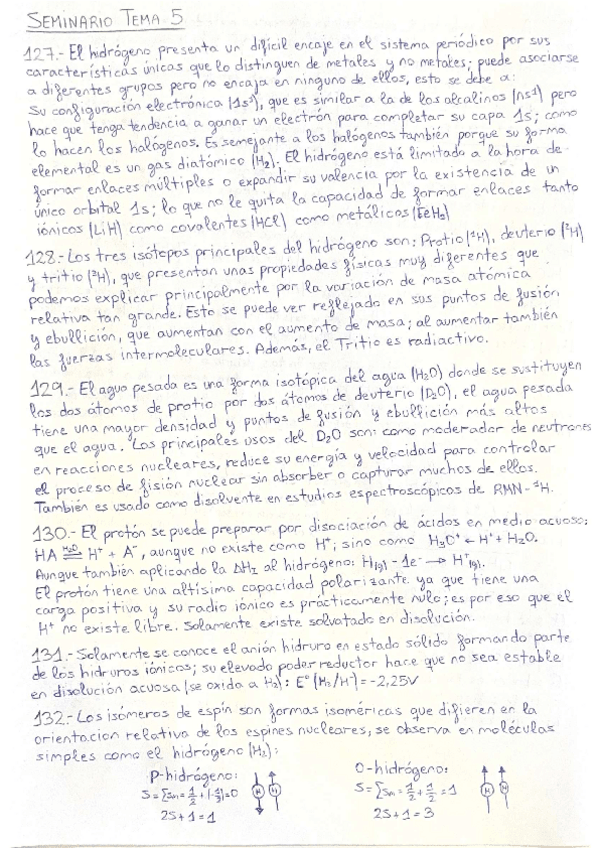 SEMINARIO TEMA 5
127.- El hidrógeno presenta un difícil encaje en el sistema periódico por sus
características únicas que lo distinguen de metales y no metales; puede asociarse
a diferentes grupos pero no encaja en ninguno de ellos, esto se debe a:
Su configuración electrónica (1s¹), que es similar a la de los alcalinos (ns¹) pero
hace que tenga tendencia a ganar un electrón para completar su capa 1s; como
lo hacen los halógenos. Es semejante a los halógenos también porque su forma
elemental es un gas diatómico (H₂). El hidrógeno está limitado a la hora de
formar enlaces múltiples o expandir su valencia por la existencia de un
único orbital 1s; lo que no le quita la capacidad de formar enlaces tanto
iónicos (LiH) como covalentes (HCl) como metálicos (FeH₂)
128.- Los tres isótopos principales del hidrógeno son: Protio (¹H), deuterio (²H)
y tritio (³H), que presentan unas propiedades físicas muy diferentes que
podemos explicar principalmente por la variación de masa atómica
relativa tan grande. Esto se puede ver reflejado en sus puntos de fusión
y ebullición, que aumentan con el aumento de masa; al aumentar también
las fuerzas intermoleculares. Además, el Tritio es radiactivo.
129.- El agua pesada es una forma isotópica del agua (H₂O) donde se sustituyen
los dos átomos de protio por dos átomos de deuterio (D₂O), el agua pesada
tiene una mayor densidad y puntos de fusión y ebullición más altos
que el agua. Los principales usos del D₂O son: como moderador de neutrones
en reacciones nucleares, reduce su energía y velocidad para controlar
el proceso de fisión nuclear sin absorber o capturar muchos de ellos.
También es usado como disolvente en estudios espectroscópicos de RMN-¹H.
130.- El protón se puede preparar por disociación de ácidos en medio acuoso:
HA ⇌ H⁺ + A⁻, aunque no existe como H⁺; sino como H₃O⁺ ← H⁺ + H₂O.
Aunque también aplicando la ΔH₂ al hidrógeno: H(g) - 1e⁻ → H⁺(g).
El protón tiene una altísima capacidad polarizante ya que tiene una
carga positiva y su radio iónico es prácticamente nulo; es por eso que el
H⁺ no existe libre. Solamente existe solvatado en disolución.
131.- Solamente se conoce el anión hidruro en estado sólido formando parte
de los hidruros iónicos; su elevado poder reductor hace que no sea estable
en disolución acuosa (se oxida a H₂): E° (H₂/H⁻) = -2,25V
132.- Los isómeros de espín son formas isoméricas que difieren en la
orientación relativa de los espines nucleares, se observa en moléculas
simples como el hidrógeno (H₂):
P-hidrógeno: O-hidrógeno:
S = ∑sₘ = 1/2 + (-1/2) = 0 H H S = ∑sₘ = 1/2 + 1/2 = 1 H H
2S+1 = 1 2S+1 = 3